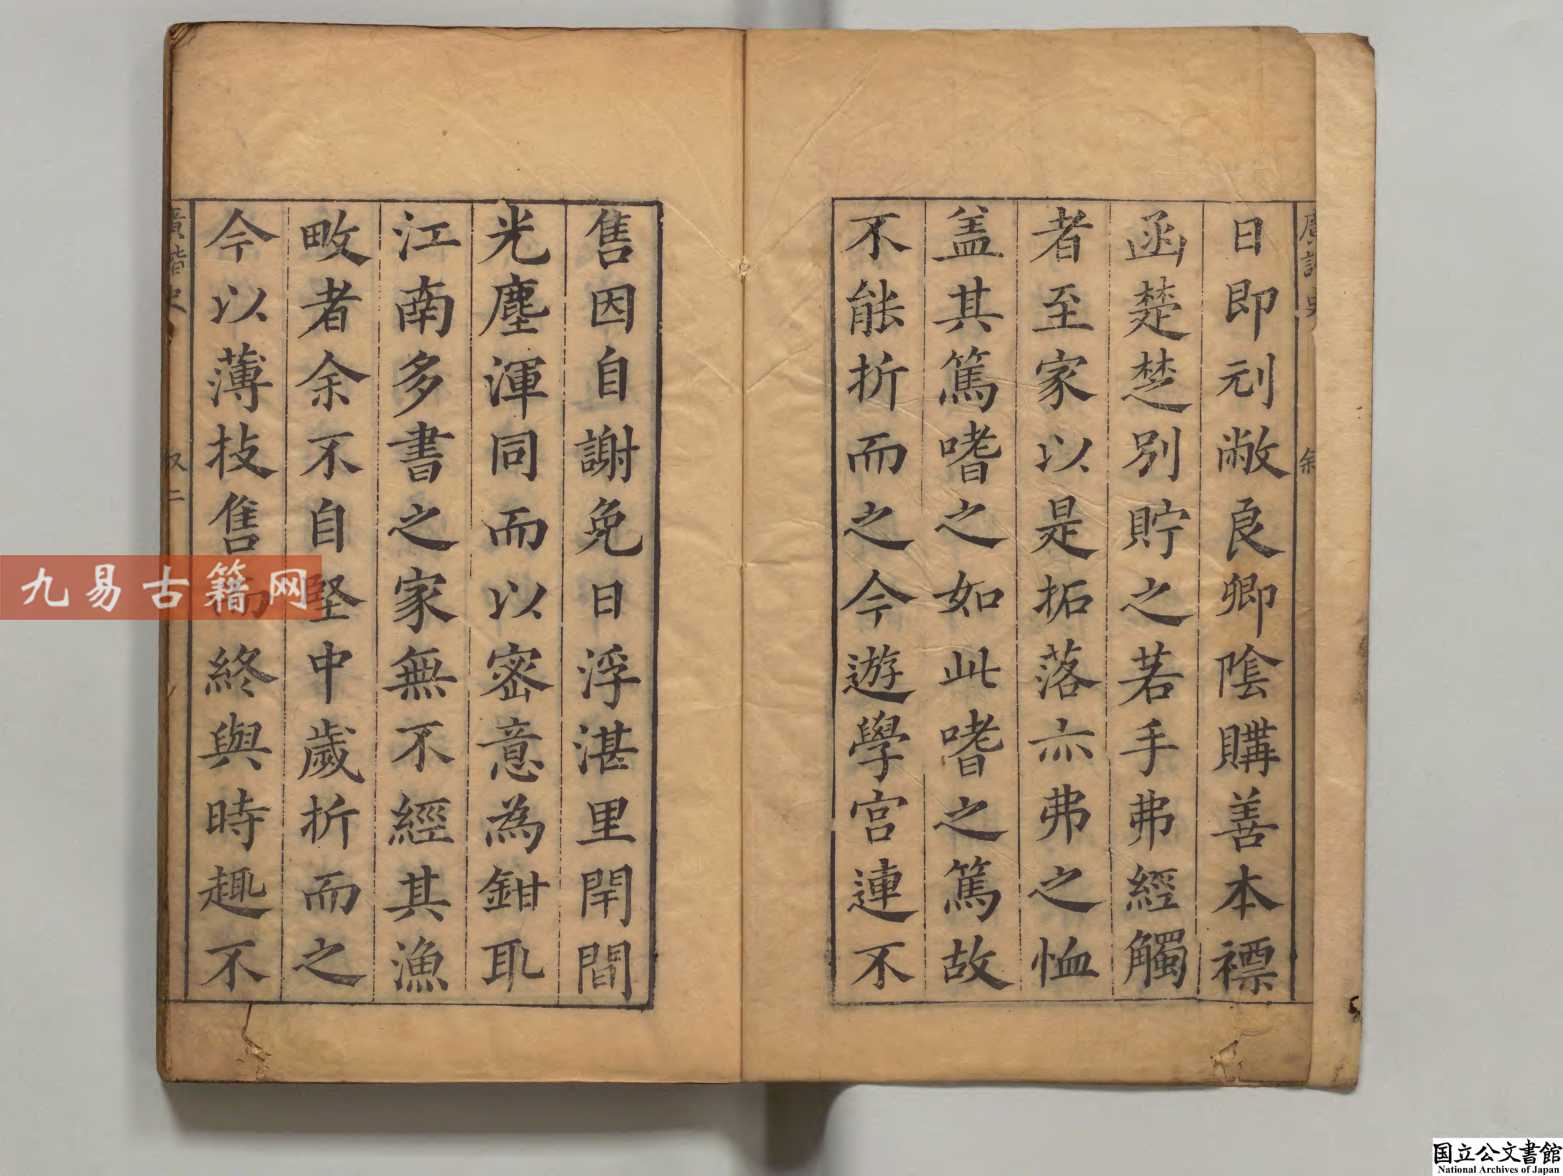 日即刓敝良卿陰購善本褾
函楚楚別貯之若手弗經觸
者至家以是拓落亦弗之恤
盖其篤嗜之如此嗜之篤故
不能折而之今遊學宮連不
售因自謝免日浮湛里閈間
光塵渾同而以密意為鉗耴
江南多書之家無不經其漁
畋者余不自堅中歲折而之
今以薄技售而終與時趣不
廣諧史
叙二
九易古籍网
国立公文書館
National Archives of Japan